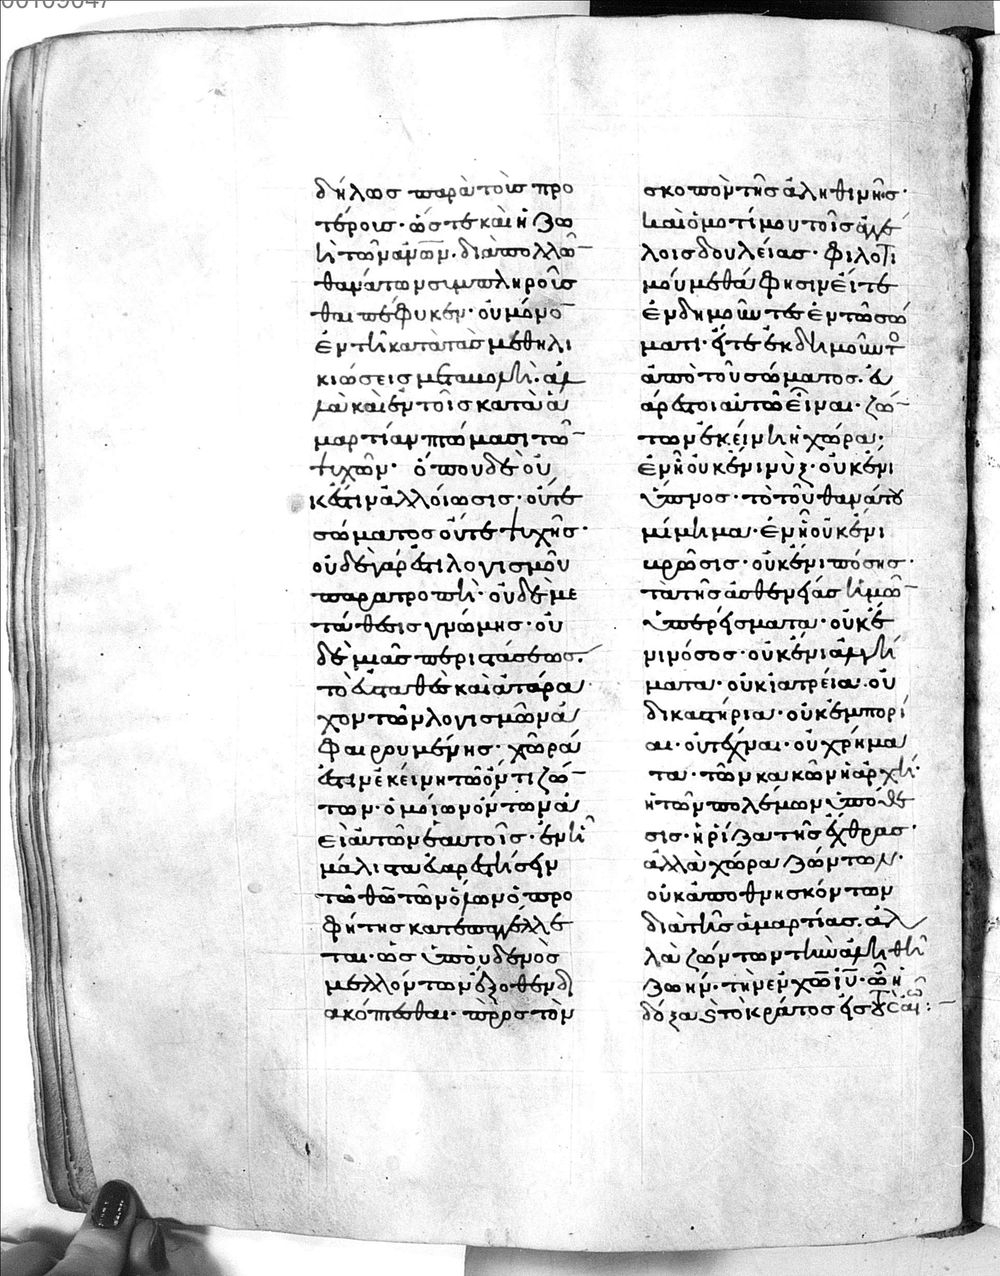 δήλως παρὰ τοῖς προ
τέροις· ὥστε καὶ ἡ ζω
ὴ τῶν ἀν̅ω̅ν̅. διὰ πολλῶ
θανάτων συμπληροῦς
θαι πέφυκεν· οὐ μόνο
ἐν τῆ κατὰ τὰς μεθηλι
κιώσεις μεταμονῆ. ἀλ
λὰ καὶ ἐν τοῖς κατὰ ἁ
μαρτίαν πτώμασι τῶ
ψυχῶν· ὅπου δὲ οὐ
κέτιν ἀλλοίωσις· οὔτε
σώματος οὔτε ψυχῆς·
οὐδὲ γάρ ἐτι λογισμοῦ
παρατροπὴ· οὐδὲ με
τάθεσις γνώμης· οὐ
δὲ μιᾶς περιστάσεως.
τὸ εὐσταθὲς καὶ ἀτάρα
χον τῶν λογισμῶν ἀ
φαιρουμένης· χώρα
ἐστιν ἐκείνη τῶ ὄντι ζώ
των· ὁμοίων ὄντων ἀ
εὶ αὐτῶν ἑαυτοῖς· ἐν ἧ
μάλιστα εὐαρεστήσειν
τῶ θ̅ῶ̅ τῶν ὅλων ὁ προ
φήτης κατεπαγγέλλε
ται· ὡς ὑπὸ οὐδενὸς
μελλόντων ἔξοθεν δι
ακόπτεσθαι· πρὸς τὸν
σκοπὸν τῆς ἀληθινῆς·
καὶ ὁμοτίμου τοῖς ἀγγέ
λοις δουλείας· φιλοτι
μούμεθα φησιν εἴτε
ἐνδημοῦντες ἐν τῶ σώ
ματι· εἴτε ἐκδημοῦντο
ἀπὸ τοῦ σώματος. εὐ
άρεστοι αὐτῶ εἶναι· ζώ
των ἐκείνη ἡ χώρα·
ἐν ἧ οὐκ ἔνι νὺξ· οὐκ ἔνι
ὕπνος· τὸ τοῦ θανάτου
μίμημα· ἐν ἧ οὐκ ἔνι
βρῶσις· οὐκ ἔνι πόσης·
τὰ τῆς ἀσθενείας ἡμῶ
ὑπερείσματα· οὐκ ἔ
νι νόσος· οὐκ ἔνι ἀλγή
ματα· οὐκ ἰατρεῖα. οὐ
δικαστήρια· οὐκ ἐμπορί
αι· οὐ τέχναι· οὐ χρήμα
τα· τῶν κακῶν ἡ ἀρχὴ·
ἡ τῶν πολέμων ὑπόθε
σις· ἡ ρίζα τῆς ἔχθρας·
ἀλλὰ χώρα ζώντων·
οὐκ ἀποθνησκόντων
διὰ τῆς ἁμαρτίας. ἀλ
λὰ ζώντων τὴν ἀληθῆ
ζωήν· τὴν ἐν χ̅ῶ̅ ι̅ῦ̅· ὧ ἡ
δόξα καὶ τὸ κράτος εἰς τοὺς αἰῶ: